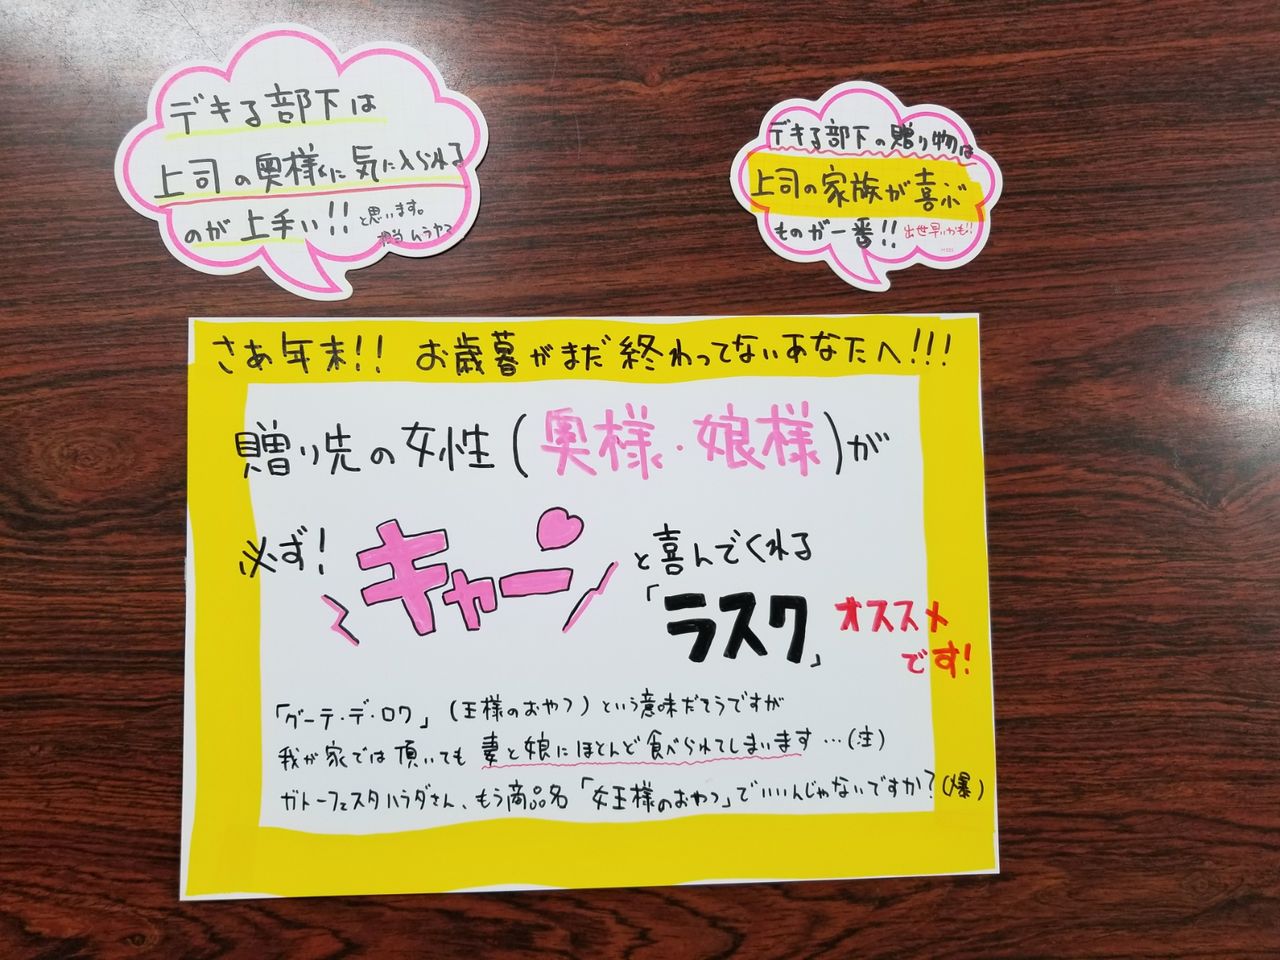 デキる部下は
上司の奥様に気に入られる
のが上手い!! と思います。
担当 ムラヤマ
デキる部下の贈り物は
上司の家族が喜ぶ
ものが一番!! 出世早いかも!!
さあ年末!! お歳暮がまだ終わってないあなたへ!!!
贈り先の女性(奥様・娘様)が
必ず! キャー と喜んでくれる
「ラスク」 オススメ
です!
「グーテ・デ・ロワ」(王様のおやつ)という意味だそうですが
我が家では頂いても妻と娘にほとんど食べられてしまいます…(泣)
ガトーフェスタハラダさん、もう商品名「女王様のおやつ」でいいんじゃないですか?(爆)